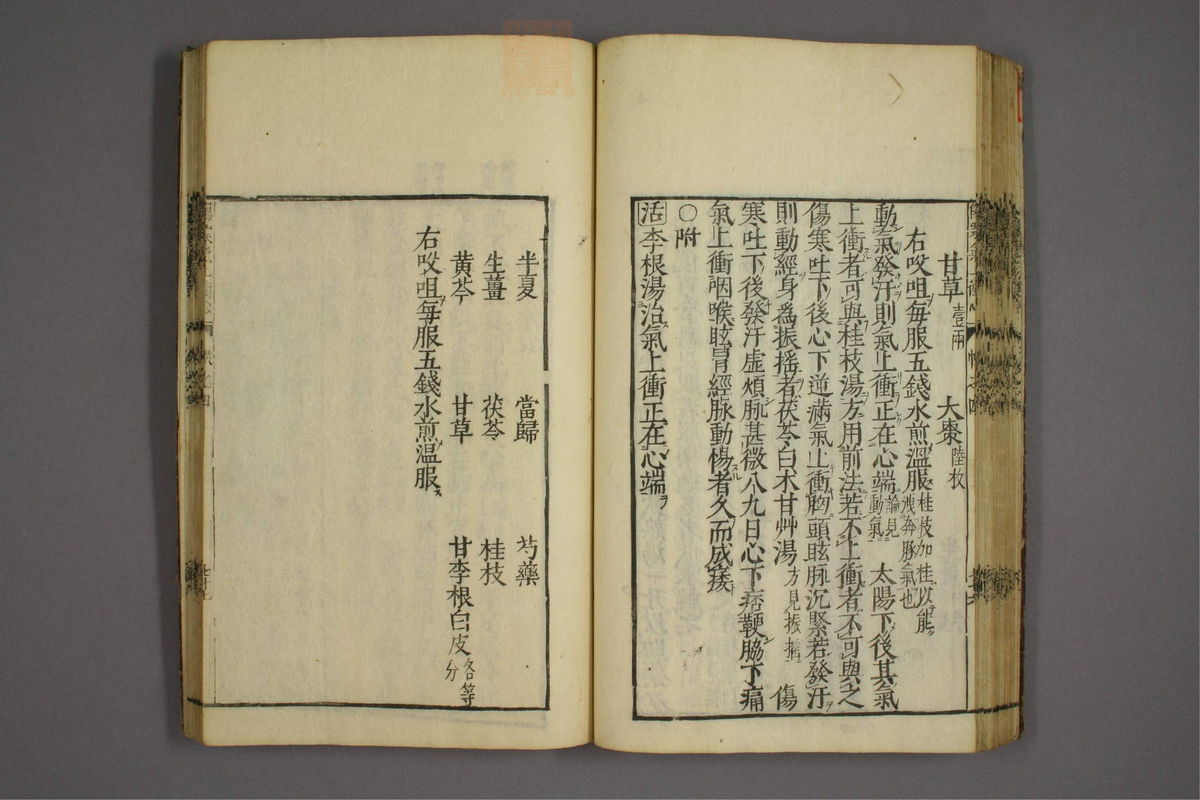 甘草壹兩 大棗陸枚
右㕮咀每服五錢水煎溫服桂枝加桂以能洩奔豚氣也
動氣發汗則氣上衝正在心端論見動氣 太陽下後其氣
上衝者可與桂枝湯方用前法若不上衝者不可與之
傷寒吐下後心下逆滿氣上衝胸頭眩脉沉緊若發汗
則動經身爲振搖者茯苓白朮甘艸湯方見振搖 傷
寒吐下後發汗虛煩脉甚微八九日心下痞鞕脇下痛
氣上衝咽喉眩冒經脉動惕者久而成痿
〇附
活李根湯治氣上衝正在心端
半夏 當歸 芍藥
生薑 茯苓 桂枝
黄芩 甘草 甘李根白皮各等分
右㕮咀每服五錢水煎溫服